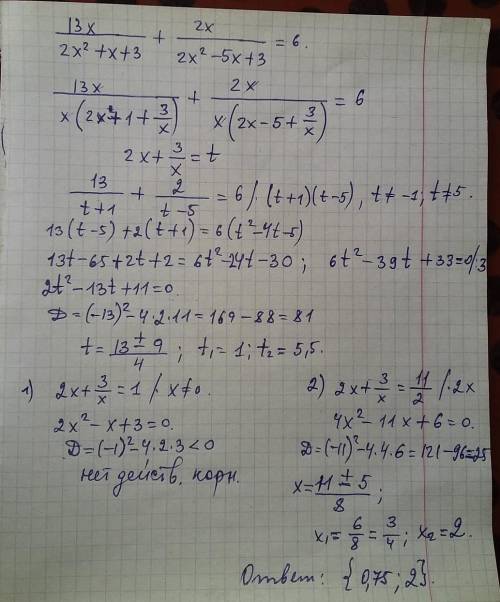 13x/(2x² + x + 3) + 2x/(2x² - 5x + 3) = 6.
13x/(x(2x + 1 + 3/x)) + 2x/(x(2x - 5 + 3/x)) = 6
2x + 3/x = t
13/(t+1) + 2/(t-5) = 6 /· (t+1)(t-5), t ≠ -1; t ≠ 5.
13(t-5) + 2(t+1) = 6(t² - 4t - 5)
13t - 65 + 2t + 2 = 6t² - 24t - 30 ; 6t² - 39t + 33 = 0 /:3
2t² - 13t + 11 = 0.
D = (-13)² - 4·2·11 = 169 - 88 = 81
t = (13 ± 9)/4 ; t₁ = 1; t₂ = 5,5.
1) 2x + 3/x = 1 /· x ≠ 0.
2x² - x + 3 = 0.
D = (-1)² - 4·2·3 < 0
нет действ. корн.
2) 2x + 3/x = 11/2 /· 2x
4x² - 11x + 6 = 0.
D = (-11)² - 4·4·6 = 121 - 96 = 25
x = (11 ± 5)/8 ;
x₁ = 6/8 = 3/4 ; x₂ = 2.
Ответ: {0,75; 2}.